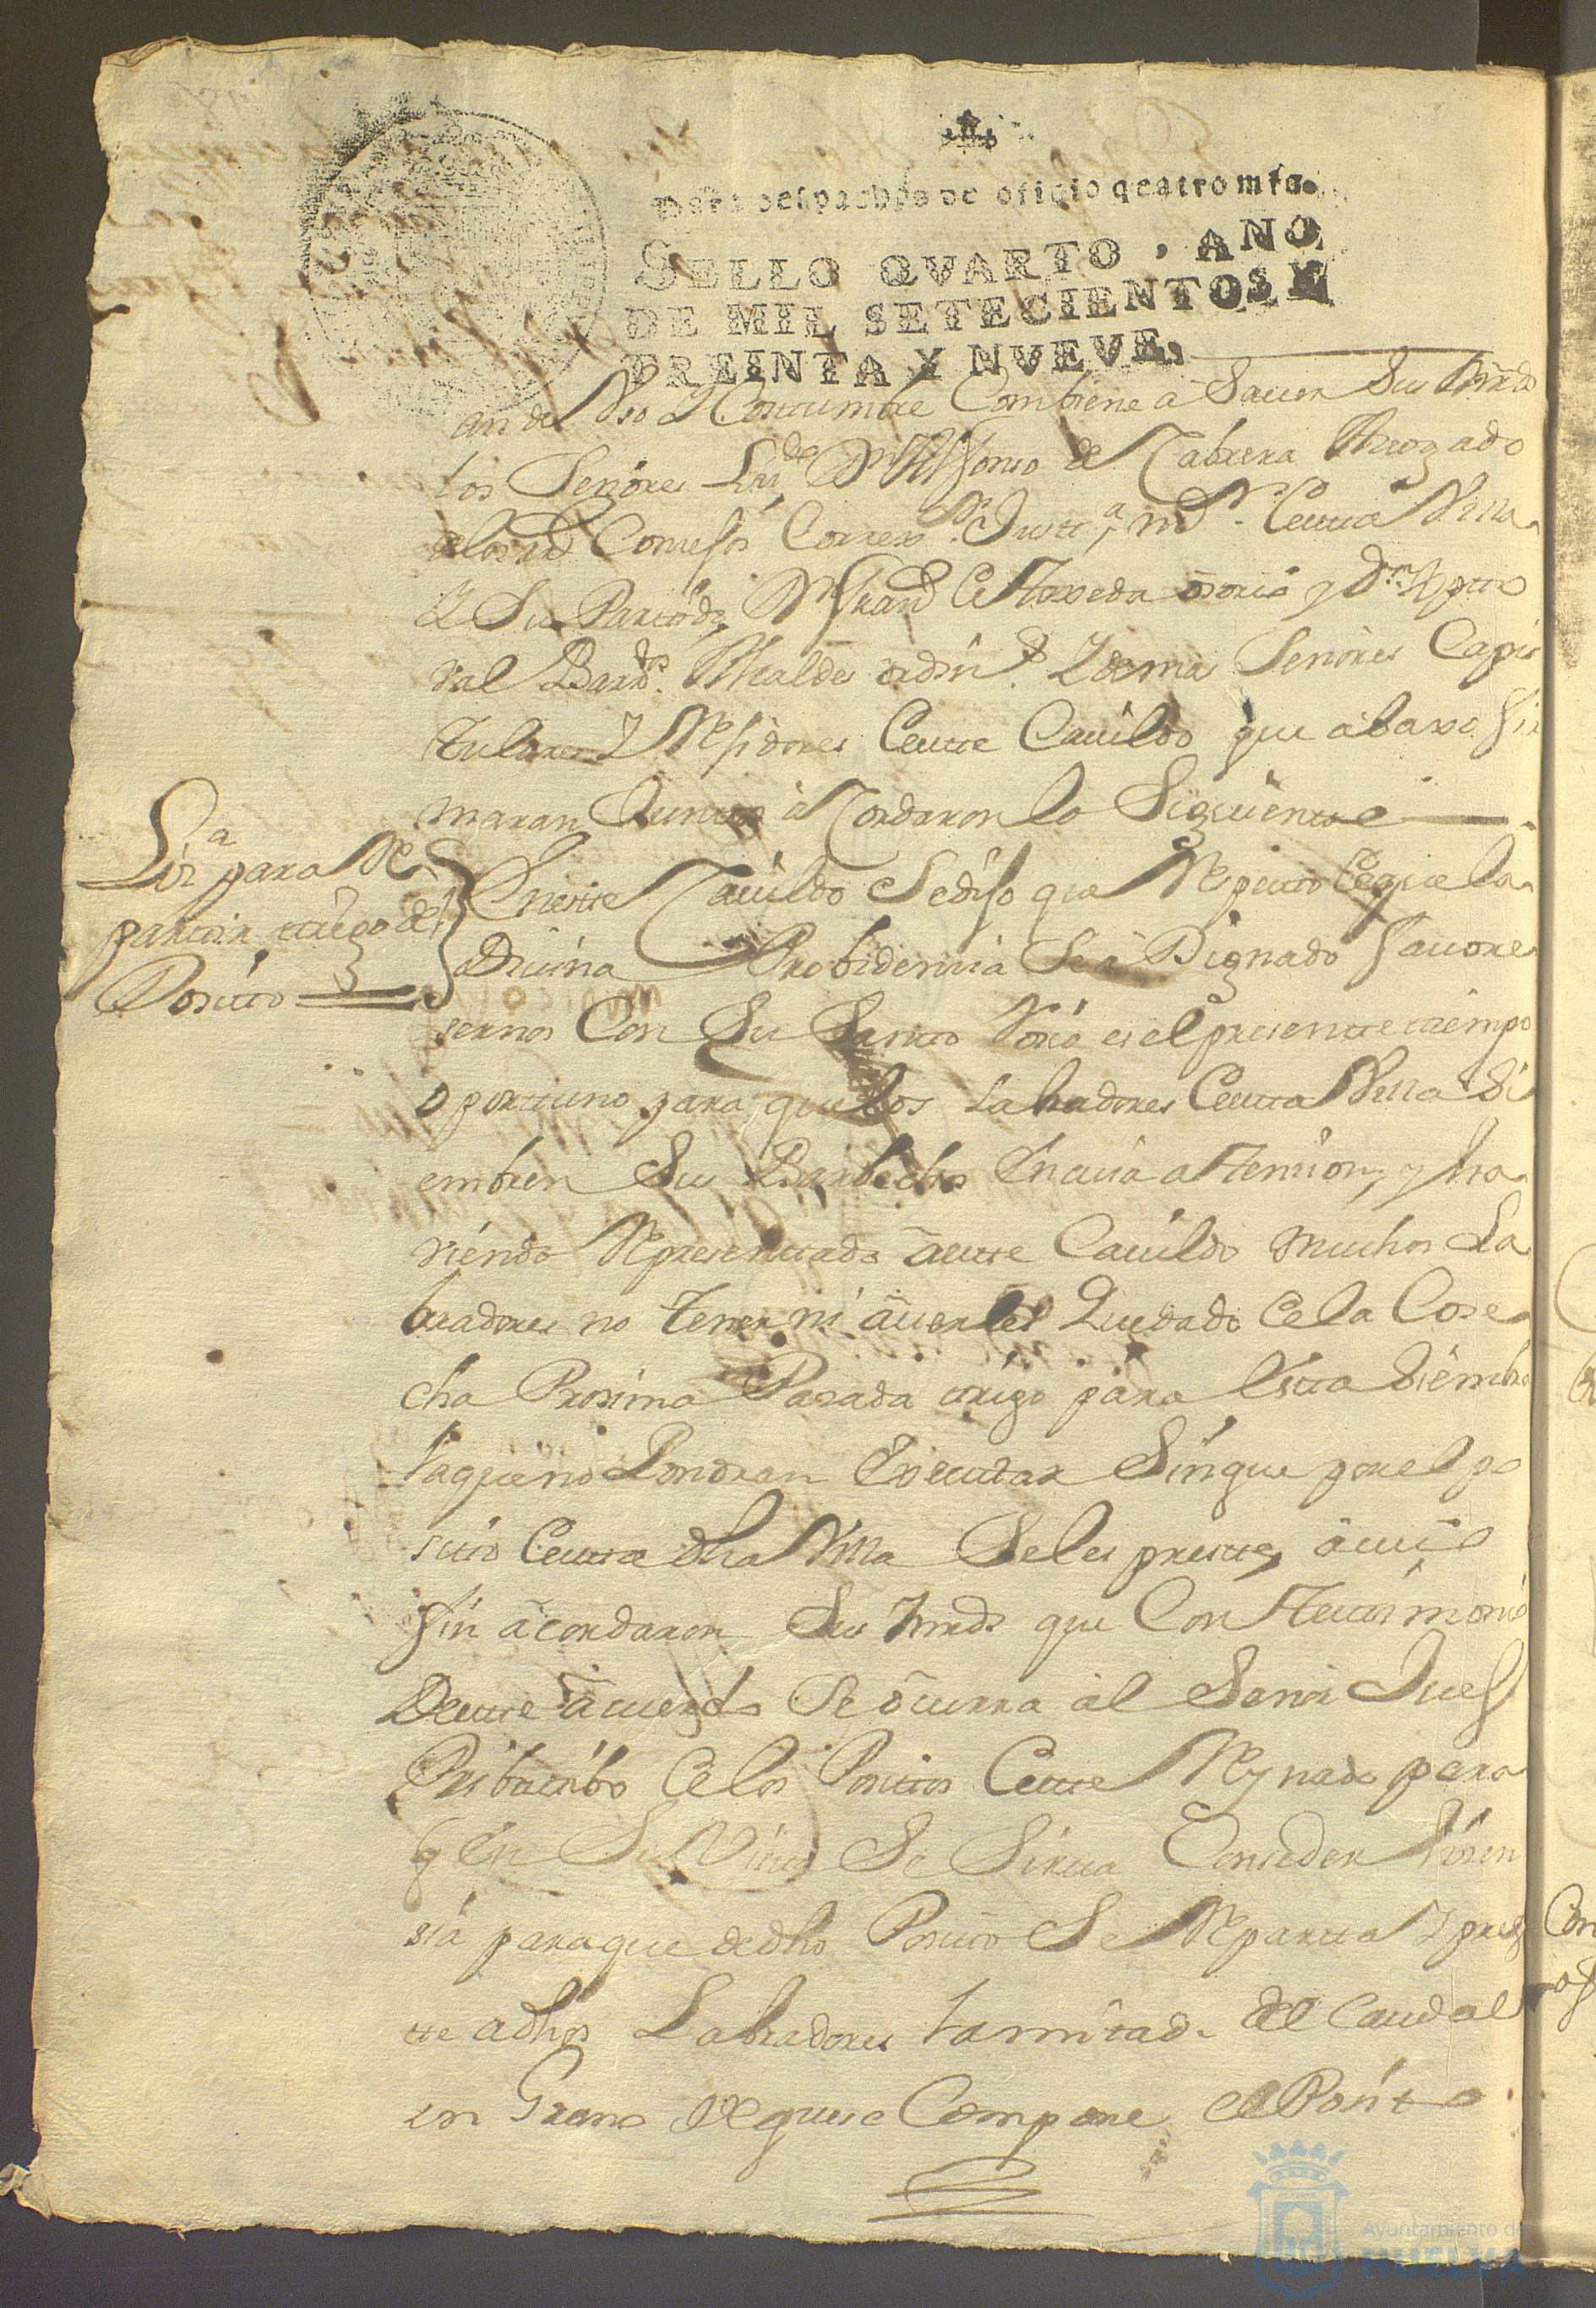 Para despachos de oficio qꝛatro mrs.
SELLO QVARTO, AÑO
DE MIL SETECIENTOS Y
TREINTA Y NVEVE,
an de Uso y Costumbre Combiene a Sauer Sus mrds
los Señores Lizdo Dn Alfonso de Cabrera Auogado
Consejos Correxor Justa mor Cesta Villa
y Su Partido, Dn Franco Ce Azeveda osorio y Dn
Alcaldes ordins y demas Señores Capi
tulares y Rexidores Ceste Cauildo que abaxo fir
maran Juntos acordaron lo Siguiente
Liza para Re
partir trigo del
Posito
Eneste Cauildo Sedijo que Respecto Ceque la
Diuina Probidencia Sea Dignado fauore
sernos Con Su Santo Rosio es el presente tiempo
oportuno para que los Labradores Cesta Villa Si
embren Sus Barbechos En cuia atension, y ha
uiendo Representado aeste Cauildo muchos La
bradores no tener ni auerles Quedado Ce la Cose
cha Proxima Pasada trigo para Esta Siembra
laque no Pondran Executar Sin que por el po
sito Cesta dha Villa Seles preste, a cuio
fin acordaron Sus mrds que Con testimonio
Deeste acuerdo Se ocurra al Senor Jues
Pribatibo Celos Positos Ceste Reynado para
q En Su Vista Se Sirua Conseder Lisen
sia paraque dedho Posito Se Reparta y pres
te adhos Labradores la mitad del Caudal
en Grano De quese Compone el Posito
Ayuntamiento de
HUELVA